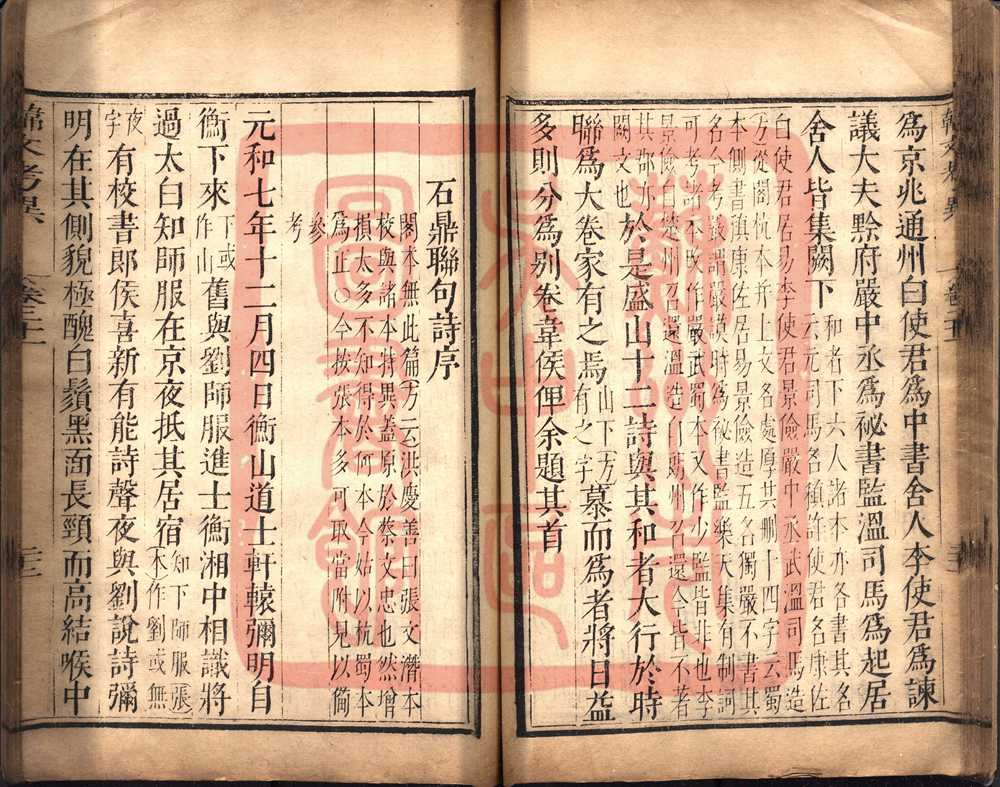 爲京兆通州白使君爲中書舍人李使君爲諫
議大夫黔府嚴中丞爲祕書監溫司馬爲起居
舍人皆集闕下
和者下六人諸本亦各書其名
云元司馬名稹許使君名康佐
白使君居易李使君景儉嚴中丞武溫司馬造
方從閣杭本并上文名處厚共刪十四字云蜀
本側書稹康佐居易景儉造五名獨嚴不書其
名今考嚴謂嚴謨時爲秘書監樂天集有制詞
可考諸本或作嚴武蜀本又作少監皆非也李
景儉自楚州召還溫造自朗州召還今皆不著
其郡亦
闕文也
於是盛山十二詩與其和者大行於時
聯爲大卷家有之焉
山下方
有之字
慕而爲者將日益
多則分爲別卷韋侯俾余題其首
石鼎聯句詩序
閣本無此篇方云洪慶善曰張文潛本
校與諸本特異蓋原於蔡文忠也然增
損太多不知得於何本今姑以杭蜀本
爲正○今按張本多可取當附見以備
參
考
元和七年十二月四日衡山道士軒轅彌明自
衡下來
下或
作山
舊與劉師服進士衡湘中相識將
過太白知師服在京夜抵其居宿
知下師服張
本作劉或無
夜
字
有校書郎侯喜新有能詩聲夜與劉說詩彌
明在其側貌極醜白鬚黑面長頸而高結喉中
韓文考異
卷二十一